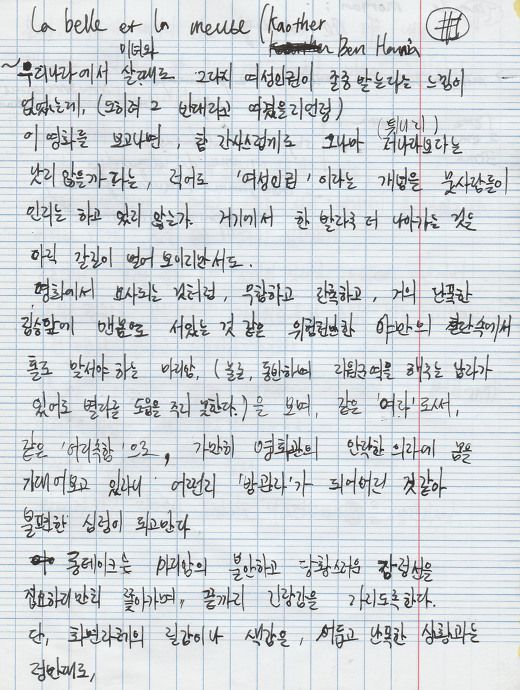 La belle et la meuse (Kaother
Ben Hania
#1
미녀와
우리나라에서 살때는 그다지 여성인권이 존중받는다는 느낌이
없었는데, (오히려 그 반대라고 여겼을지언정)
이 영화를 보고나면, 참 간사스럽게도 그나마 저나라보다는
(튀니지)
낫지 않을까 하는, 적어도 '여성인권' 이라는 개념을 뭇사람들이
인지는 하고 있지 않는가. 거기에서 한 발자국 더 나아가는 것은
아직 갈길이 멀어 보이지만서도.
영화에서 묘사되는 것처럼, 무참하고 잔혹하고, 거의 난폭한
짐승앞에 맨몸으로 서있는 것 같은 위험천만한 야만의 집단속에서
홀로 맞서야 하는 마리암, (물론, 동반하며 지원군역을 해주는 남자가
있어도 별다른 도움을 주지 못한다.)을 보며, 같은 '여자'로서,
같은 '여리족함'으로, 가만히 영화관의 안락한 의자에 몸을
기대어보고 있자니 어쩐지 '방관자'가 되어버린 것같아
불편한 심정이 되고만다
롱테이크는 마리암의 불안하고 당황스러운 감정선을
집요하리만치 쫓아가며, 끝까지 긴장감을 가지도록한다.
단, 화면자체의 질감이나 색감은, 어둡고 난폭한 상황과는
정반대로,